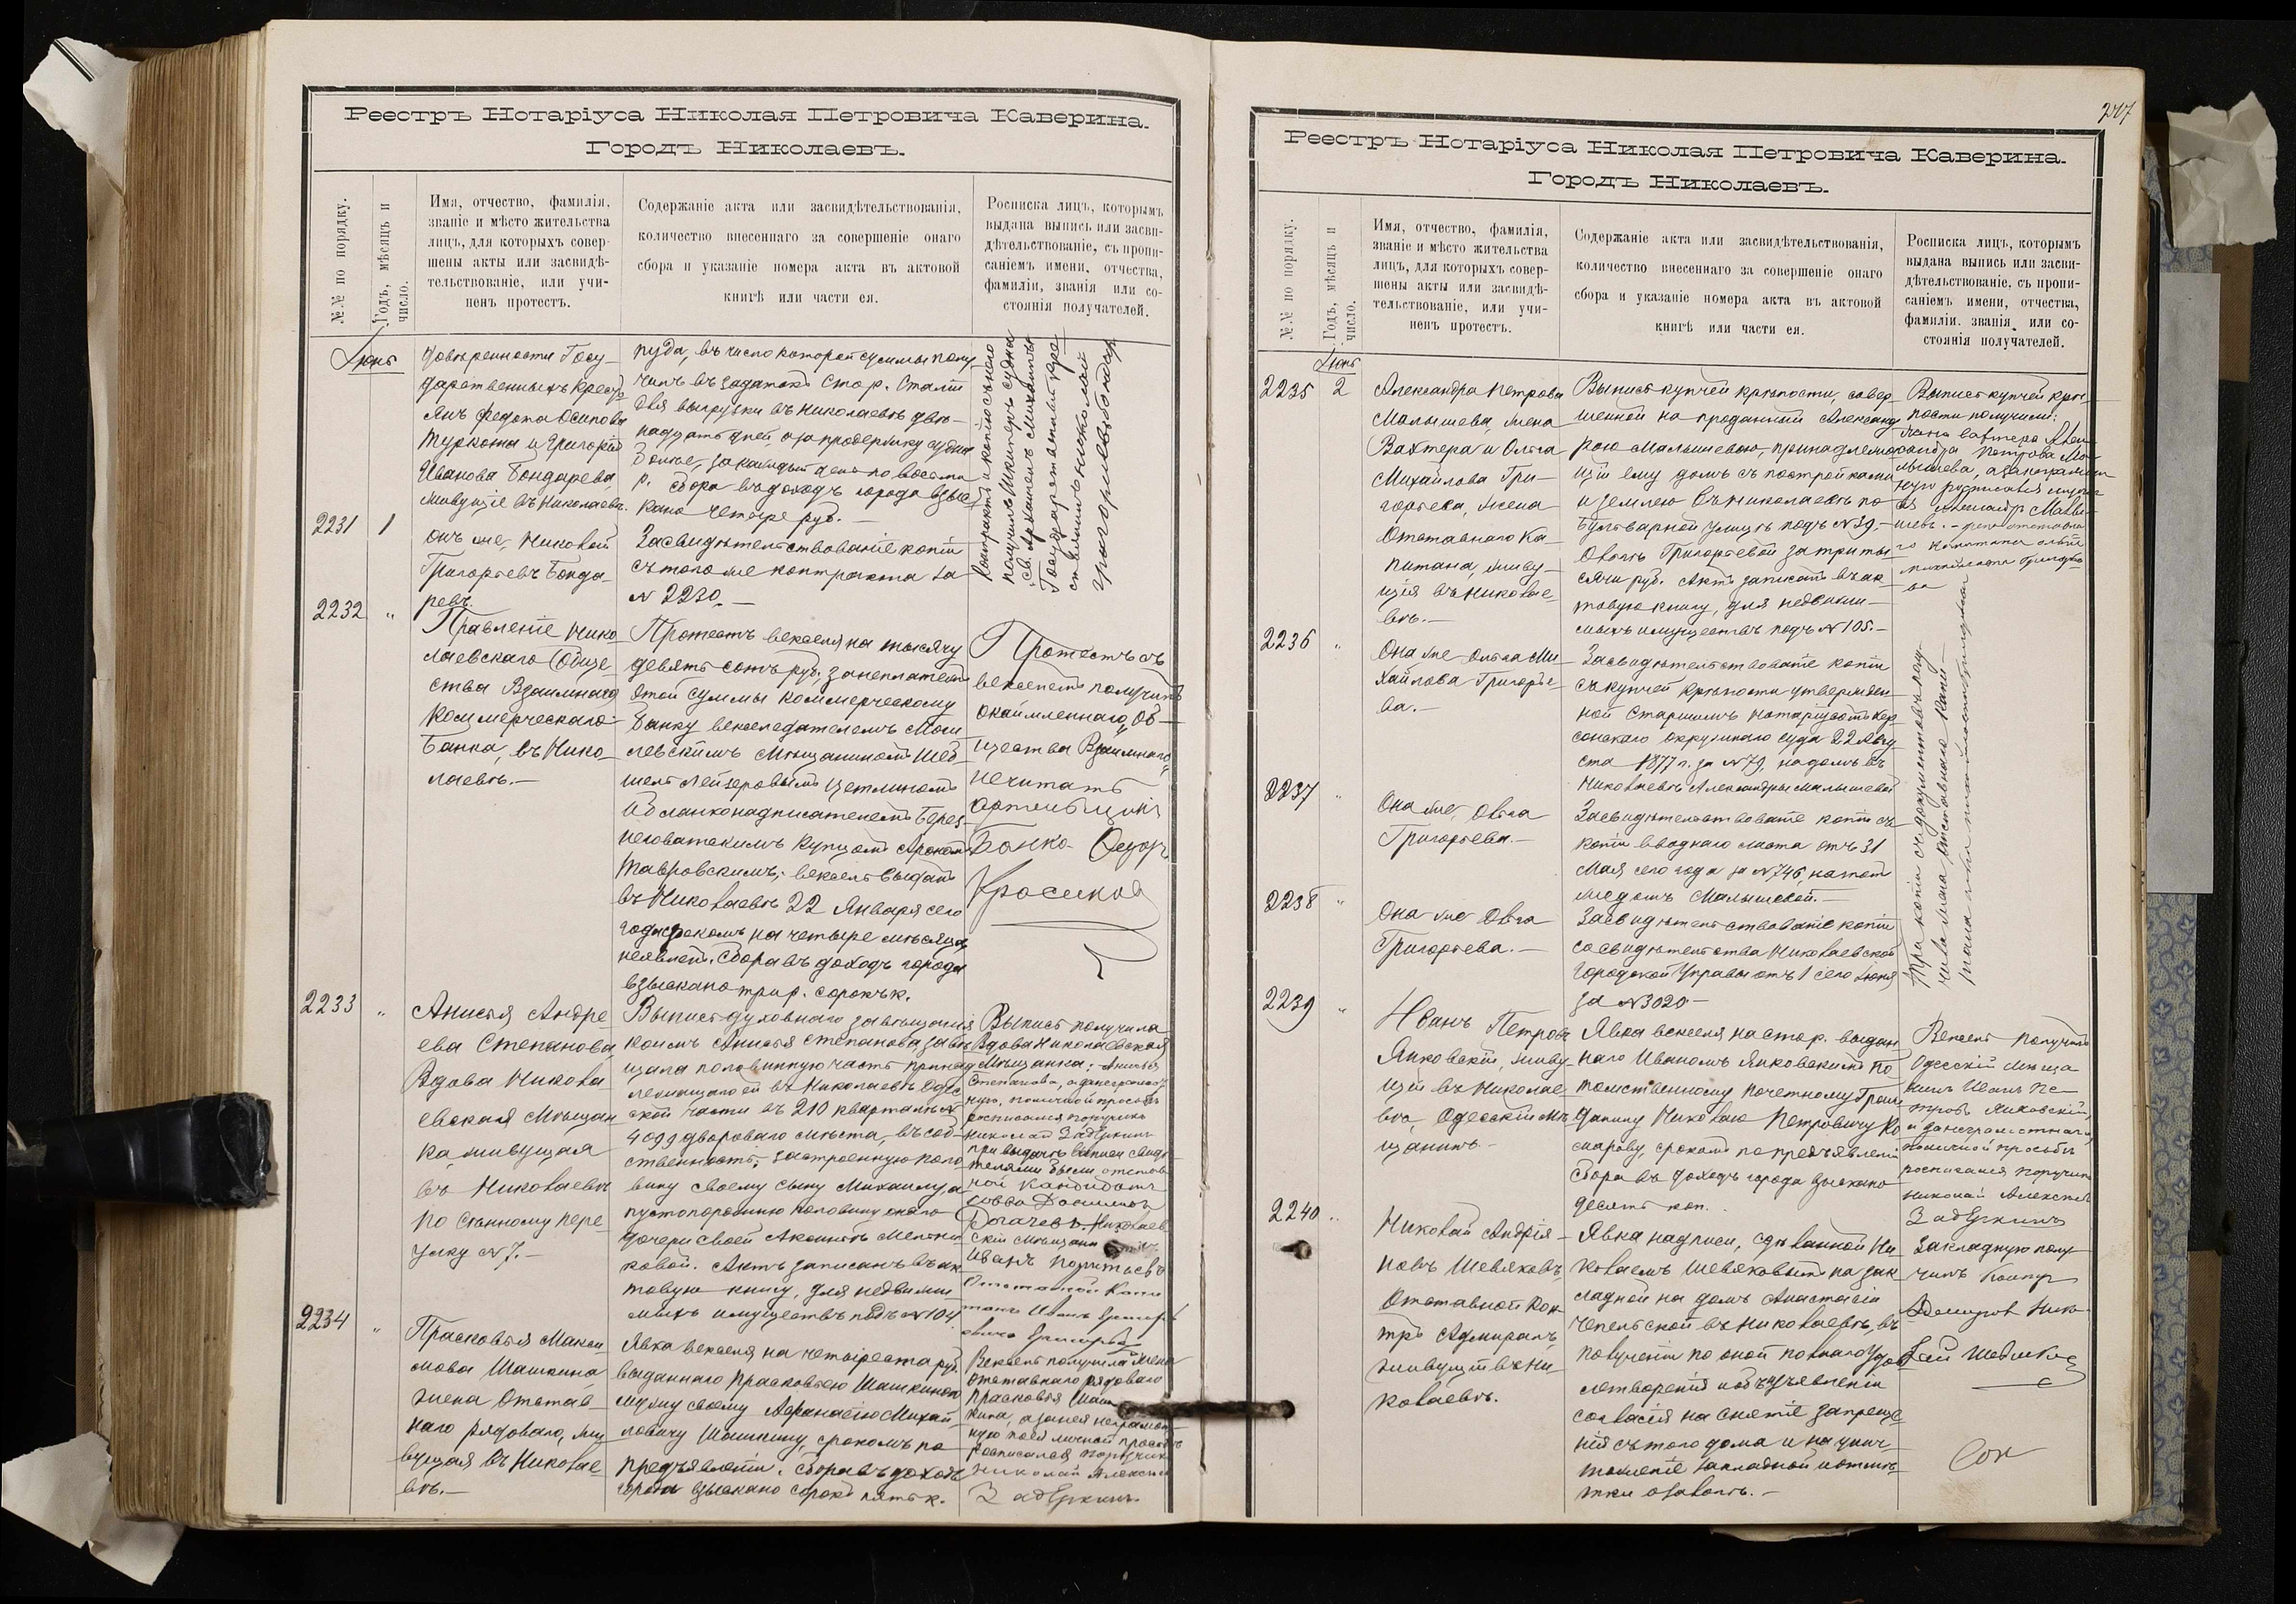 Реестръ Нотаріуса Николая Петровича Каверина.
Городъ Николаевъ.
№.№ по порядку.
Годъ, мѣсяцъ и
число.
Имя, отчество, фамилія,
званіе и мѣсто жительства
лицъ, для которыхъ совер-
шены акты или засвидѣ-
тельствованіе, или учи-
ненъ протестъ.
Содержаніе акта или засвидѣтельствованія,
количество внесеннаго за совершеніе онаго
сбора и указаніе номера акта въ актовой
книгѣ или части ея.
Росписка лицъ, которымъ
выдана выпись или засви-
дѣтельствованіе, съ пропи-
саніемъ имени, отчества,
фамиліи, званія или со-
стоянія получателей.
Іюнь
довѣренности Госу
дарственныхъ Кресть
янъ Федота Осипова
Туркота и Григорія
Иванова Бондарева,
живущіе въ Николаевѣ.
пуда, въ число которой суммы полу
чилъ въ задатокъ сто р. Сталіи
для выгрузки въ Николаевѣ двѣ-
надцать дней а за продержку судна
болѣе, за каждый день по восьми
р. сбора въ доходъ города взыс
кано четыре руб. —
Контрактъ и копію съ него
получилъ Шкиперъ судна
Св. Архангелъ Михаилъ
2231
1
онъ же, Николай
Григорьевъ Бонда-
ревъ.
Засвидѣтельствованіе копіи
съ того же контракта за
№ 2230. —
2232
"
Правленіе Нико
лаевскаго Обще
ства Взаимнаго
Коммерческаго
Банка, въ Нико
лаевѣ. —
Протестъ векселя на тысячу
девятьсотъ руб, за неплатежъ
этой суммы Коммерческому
Банку векселедателемъ Моги
левскимъ Мѣщаниномъ Шеб
шелъ Лейзеровымъ Цетлиномъ
и бланконадписателемъ Берез
неговатскимъ Купцомъ Арономъ
Тавровскимъ; вексель выданъ
въ Николаевѣ 22 Января сего
года срокомъ на четыре мѣсяца
неявлен. Сбора въ доходъ города
взыскано три р. сорокъ к.
Протестъ съ
векселемъ получилъ
Общества Взаимнаго
не читать
артельщикъ
Банка
2233
"
Анисья Андре
ева Степанова,
Вдова Никола
евская Мѣщан
ка, живущая
въ Николаевѣ
по Сѣнному пере
улку №7. —
Выпись духовнаго завѣщанія
коимъ Анисья Степанова завѣ
щала половинную часть принад
лежащаго ей въ Николаевѣ Одес
ской части въ 210 кварталѣ №
4099 двороваго мѣста, въ соб-
ственность; застроенную поло
вину своему сыну Михаилу а
пустопорожнюю половину онаго
дочери своей Акинѣ Мельни
ковой. Актъ записанъ въ ак
товую книгу, для недвижи
мыхъ имуществъ подъ №104
Выпись получила
Вдова Николаевская
Мѣщанка: Анисья
Степанова, а за неграмот
ную, по личной просьбѣ
росписался поручикъ
Николай Задеркинъ
при выдачѣ выписи свидѣ
телями были отстав
ной Кандидатъ
Богачевъ. Николаев
скій Мѣщанинъ
Иванъ
Отставной Капи
танъ Иванъ Григорь
2234
"
Прасковья Макси
мова Шашкина
жена Отстав
наго рядоваго, жи
вущая въ Николае
вѣ. —
Явка векселя на четыреста руб.
выданнаго Прасковьею Шашкиной
мужу своему Афанасію Михай
ловичу Шашкину, срокомъ по
предъявленіи. Сбора въ доходъ
города взыскано сорокъ пять к.
Вексель получила жена
отставнаго рядоваго
Прасковья Шаш
кина, а за нея неграмот
ную по ея личной просьбѣ
росписался поручикъ
Николай Алексѣев
Задеркинъ
Реестръ Нотаріуса Николая Петровича Каверина.
Городъ Николаевъ.
№.№ по порядку.
Годъ, мѣсяцъ и
число.
Имя, отчество, фамилія,
званіе и мѣсто жительства
лицъ, для которыхъ совер-
шены акты или засвидѣ-
тельствованіе, или учи-
ненъ протестъ.
Содержаніе акта или засвидѣтельствованія,
количество внесеннаго за совершеніе онаго
сбора и указаніе номера акта въ актовой
книгѣ или части ея.
Росписка лицъ, которымъ
выдана выпись или засви-
дѣтельствованіе, съ пропи-
саніемъ имени, отчества,
фамиліи. званія или со-
стоянія получателей.
Іюнь
2235
2
Александра Петрова
Малышева, жена
Вахтера и Ольга
Михайлова Гри-
горьева, жена
Отставнаго Ка-
питана, живу-
щія въ Николае
вѣ. —
Выпись купчей крѣпости, совер
шенной на проданный Александ
рою Малышевою, принадлежа
щій ему домъ съ постройками
и землею въ Николаевѣ по
Бульварной улицѣ подъ №39. —
Ольгѣ Григорьевой за три ты
сячи руб. Актъ записанъ въ ак
товую книгу, для недвижи —
мыхъ имуществъ подъ №105. —
Выпись купчей крѣ-
пости получили:
жена вахтера Алек
сандра Петрова Ма
лышева, а за неграмот
ную росписался мужъ
ея Александръ
2236
"
Она же Ольга Ми
хайлова Григорье
ва. —
Засвидѣтельствованіе копіи
съ купчей крѣпости утвержден
ной Старшимъ Нотаріусомъ Хер
сонскаго окружнаго суда 22 Авгу
ста 1877 г. за №79, на домъ въ
Николаевѣ Александры Малышевой
2237
"
Она же, Ольга
Григорьева. —
Засвидѣтельствованіе копіи съ
копіи вводнаго листа отъ 31
Мая сего года за №746, на тотъ
же домъ Малышевой. —
2238
"
Она же Ольга
Григорьева. —
Засвидѣтельствованіе копіи
со свидѣтельства Николаевской
Городской Управы отъ 1 сего Іюня
за №3020 —
Три копіи съ документовъ полу
2239
"
Иванъ Петровъ
Янковскій, живу
щій въ Николае
вѣ, Одесскій мѣ
щанинъ —
Явка векселя на сто р. выдан
наго Иваномъ Янковскимъ По
томственному почетному Граж
данину Николаю Петровичу Ко
марову, срокомъ по предъявленіи
Сбора въ доходъ города взыскано
десять коп.
Вексель получилъ
Одесскій мѣща
нинъ Иванъ Пе
тровъ Янковскій,
а за неграмотнаго,
по личной просьбѣ
росписался поручикъ
Николай Алексѣев
Задеркинъ
2240
"
Николай Андрія —
новъ Шевяковъ,
Отставной Кон
тръ Адмиралъ,
живущій въ Ни
колаевѣ.
Явка надписи, сдѣланной Ни
колаемъ Шевяковымъ на зак
ладной на домъ Анастасіи
Чепельской въ Николаевѣ, въ
полученіи по оной полнаго удов
летворенія и объ изъявленіи
согласія на снятіе запреще
нія съ того дома и на унич-
тоженіе закладной и отмѣт-
Закладную полу
чилъ Контр
Адмиралъ Нико
лай Шевяковъ